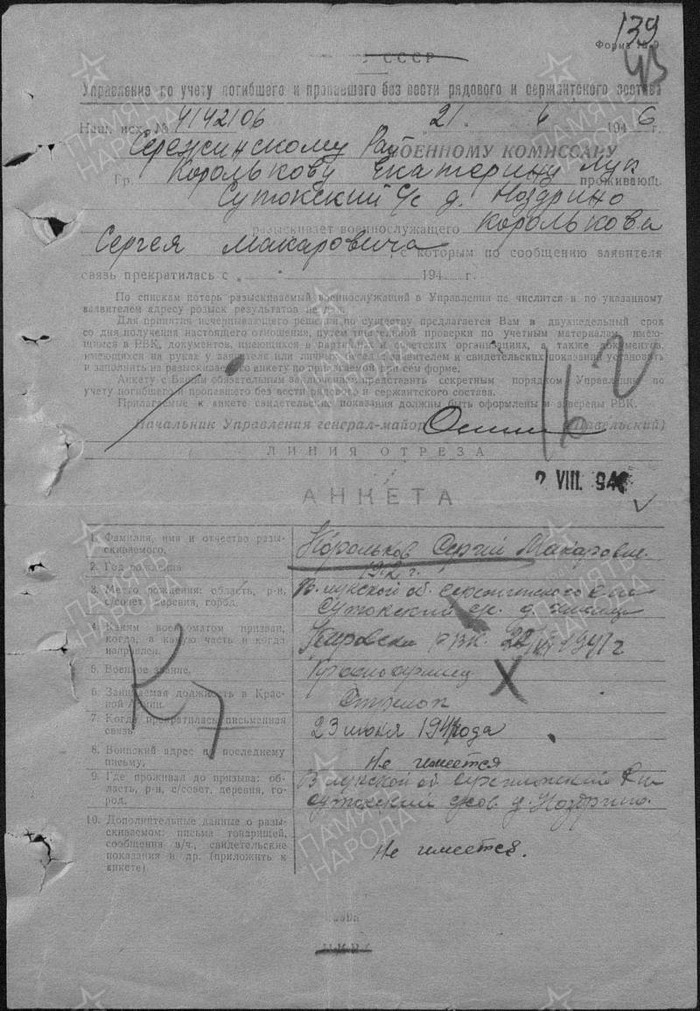 139
СССР
Форма № 9
43
Управление по учету погибшего и пропавшего без вести рядового и сержантского состава
Наш. исх. № 4142106 21. 6 1946 г.
Сережинскому Рай ВОЕННОМУ КОМИССАРУ
Гр. Королькову Екатерину Лук проживающ.
Сутокский с/с д. Ноздрино
разыскивает военнослужащего Королькова
Сергея Макаровича с которым по сообщению заявителя
связь прекратилась с 194 г.
По спискам потерь разыскиваемый военнослужащий в Управлении не числится и по указанному
заявителем адресу розыск результатов не
Для принятия исчерпывающего решения по существу предлагается Вам в двухнедельный срок
со дня получения настоящего отношения, путем тщательной проверки по учетным материалам, имею-
щимся в РВК, документов, имеющихся в партийных и советских организациях, а также документов,
имеющихся на руках у заявителя или личных бесед с заявителем и свидетельских показаний установить
и заполнить на разыскиваемого анкету по прилагаемой при сем форме.
Анкету с Вашим обязательным заключением представить секретным порядком Управлению по
учету погибшего и пропавшего без вести рядового и сержантского состава.
Прилагаемые к анкете свидетельские показания должны быть оформлены и заверены РВК.
Начальник Управления генерал-майор
ЛИНИЯ ОТРЕЗА
VIII. 194
АНКЕТА
1. Фамилия, имя и отчество разы-
скиваемого.
Корольков Сергей Макарович
2. Год рождения
3. Место рождения: область, р-н,
с/совет, деревня, город.
В. лукской об. Сережинского р-на
Сутокский с/с. д.
4. Каким военкоматом призван,
когда, в какую часть и когда
направлен.
РВК. 1941 г
5. Военное звание.
Красноармеец
6. Занимаемая должность в Крас-
ной Армии.
Стрелок
7. Когда прекратилась письменная
связь.
23 июня 1941 года
8. Воинский адрес по последнему
письму.
Не имеется
9. Где проживал до призыва: об-
ласть, р-н, с/совет, деревня, го-
род.
В лукской об. Сережинский р-н
Сутокский с/сов д. Ноздрино.
10. Дополнительные данные о разы-
скиваемом: письма товарищей,
сообщения в/ч, свидетельские
показания и др. (приложить к
анкете)
Не имеется.
ПАМЯТЬ НАРОДА